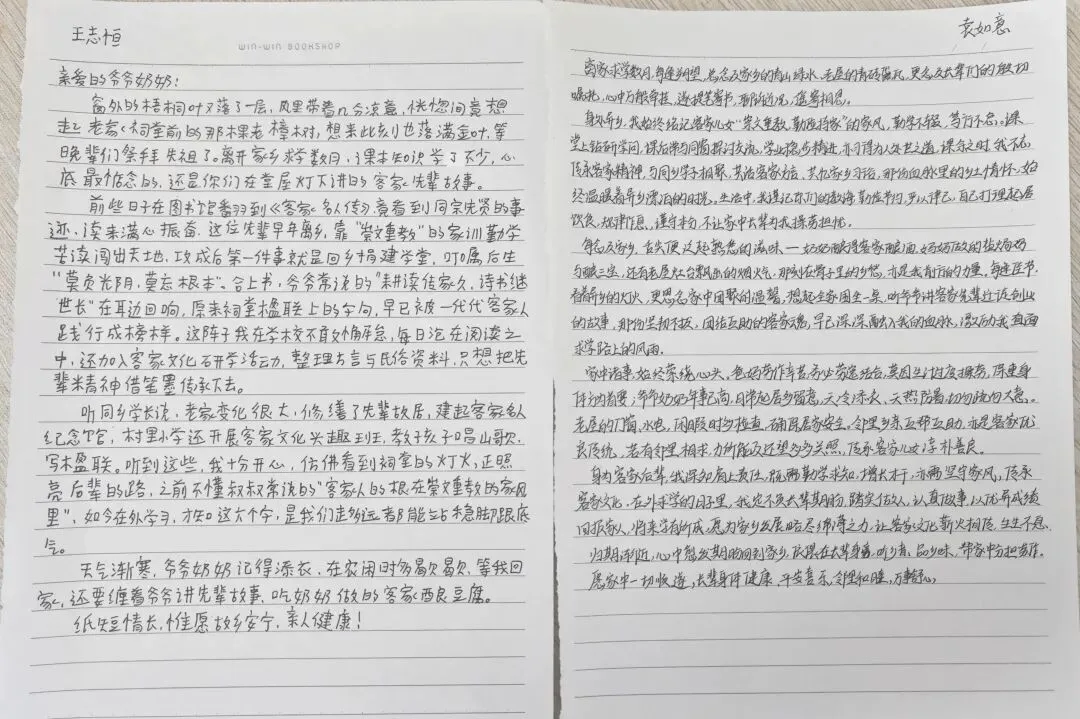 王志恒
WIN-WIN BOOKSHOP
亲爱的爷爷奶奶：
窗外的梧桐叶又落了一层，风里带着几分凉意，恍惚间竟想
起老家祠堂前的那棵老樟树，想来此刻也落满金叶，等
晚辈们祭拜先祖了。离开家乡求学数月，课本知识学了不少，心
底最惦念的，还是你们在堂屋灯下讲的客家先辈故事。
前些日子在图书馆翻到《客家名人传》，竟看到同宗先贤的事
迹，读来满心振奋。这位先辈早年离乡，靠“崇文重教”的家训勤学
苦读闯出天地，功成后第一件事就是回乡捐建学堂，叮嘱后生
“莫负光阴，莫忘根本”。合上书，爷爷常说的“耕读传家久，诗书继
世长”在耳边回响，原来祠堂楹联上的字句，早已被一代代客家人
践行成榜样。这阵子我在学校不敢有半分懈怠，每日泡在阅读之
中，还加入客家文化研学活动，整理方言与民俗资料，只想把先
辈精神借笔墨传承下去。
听同乡学长说，老家变化很大，修缮了先辈故居，建起客家名人
纪念馆，村里小学还开展客家文化兴趣班，教孩子唱山歌，
写楹联。听到这些，我十分开心，仿佛看到祠堂的灯火，正照
亮后辈的路，之前不懂叔叔常说的“客家人的根在崇文重教的家风
里”，如今在外学习，才知这六个字，是我们走多远都能站稳脚跟底
气。
天气渐寒，爷爷奶奶记得添衣，在农闲时多歇歇，等我回
家，还要缠着爷爷讲先辈故事，吃奶奶做的客家酿豆腐。
纸短情长，惟愿故乡安宁，亲人健康！
袁如意
离家求学数月，每逢朔望，总念及家乡的青山绿水，老屋的青砖黛瓦，更念及长辈们的殷切
嘱托，心中万般牵挂，遂提笔寄书，聊叙近况，遥寄相思。
身处异乡，我始终铭记客家儿女“崇文重教，勤俭持家”的家风，勤学不辍，笃行不怠。课
堂上钻研学问，课后常与同窗探讨交流，学业稳步精进，亦习得为人处世之道，课余之时，我不忘
传承客家精神，与同乡学子相聚，共话客家方言，共忆家乡习俗，那份血脉里的乡土情怀，始
终温暖着异乡漂泊的时光，生活中，我谨记你们的教诲，勤俭节约，严以律己，自己打理起居
饮食，规律作息，谨守本分，不让家中长辈为我操劳担忧。
每念及家乡，舌尖便泛起熟悉的滋味——奶奶酿得客家酿酒，妈妈做的盐焗鸡
与酿三宝，还有老屋灶台飘出的烟火气，那刻在骨子里的乡愁，亦是我前行的力量，每逢佳节，
看着异乡的灯火，更思念家中团聚的温馨，想起全家围坐一桌，听爷爷讲客家先辈迁徙创业
的故事，那份坚韧不拔，团结互助的客家魂，早已深深融入我的血脉，激励我直面
求学路上的风雨。
家中诸事，始终萦绕心头，爸妈劳作辛苦，务必劳逸结合，莫因生计过度操劳，保重身
体方为首要，爷爷奶奶年事已高，日常起居多留意，天冷添衣，天热防暑，切勿疏忽大意。
老屋的门窗，水电，闲暇时多检查，确保居家安全。邻里乡亲互帮互助，亦是客家优
良传统，若有邻里相求，力所能及还望多多关照，传承客家儿女淳朴善良。
身为客家后辈，我深知肩上责任，既需勤学求知，增长才干，亦需坚守家风，传承
客家文化，在外求学的日子里，我定不负长辈期盼，踏实做人，认真做事，以优异成绩
回报家人，将来学有所成，愿为家乡发展略尽绵薄之力，让客家文化薪火相传，生生不息。
归期渐近，心中愈发期盼回到家乡，依偎在长辈身旁，听乡音，品乡味，帮家中分担家务。
愿家中一切顺遂，长辈身体健康，平安喜乐，邻里和睦，万事舒心。